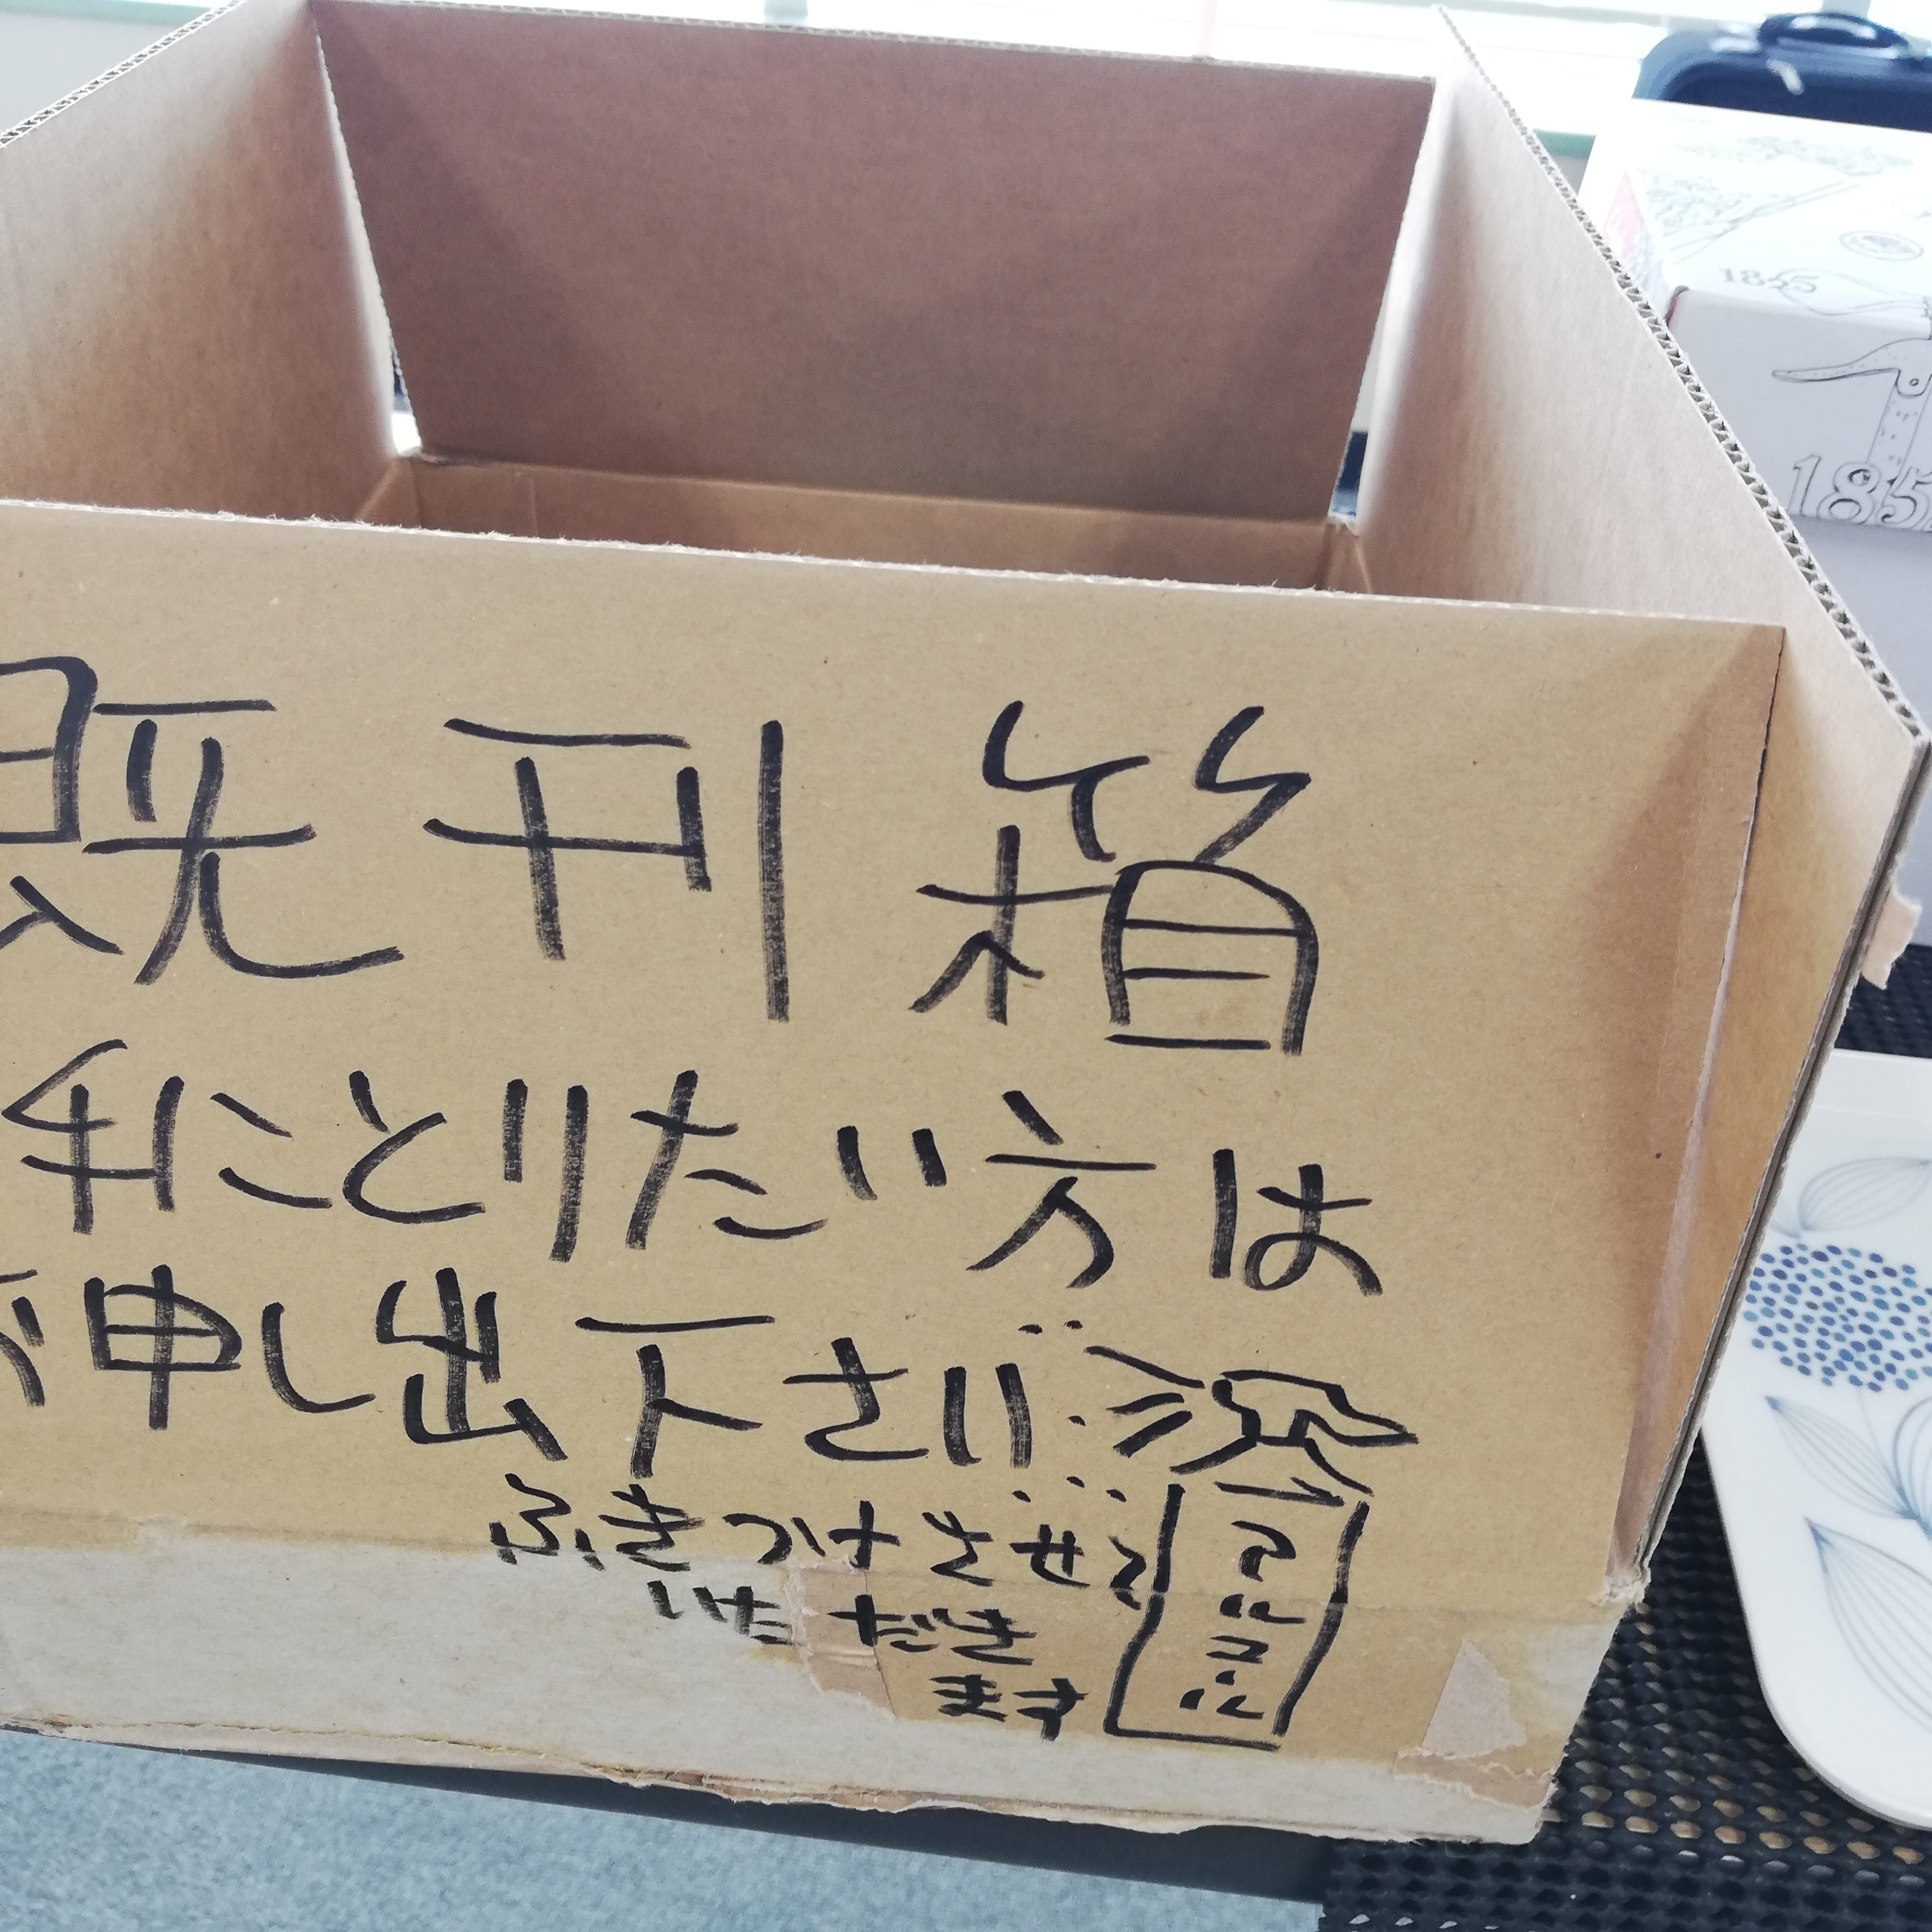 既刊箱
手にとりたい方は
申し出下さい
ふきつけさせて
いただき
ます
アルコール
1855
185